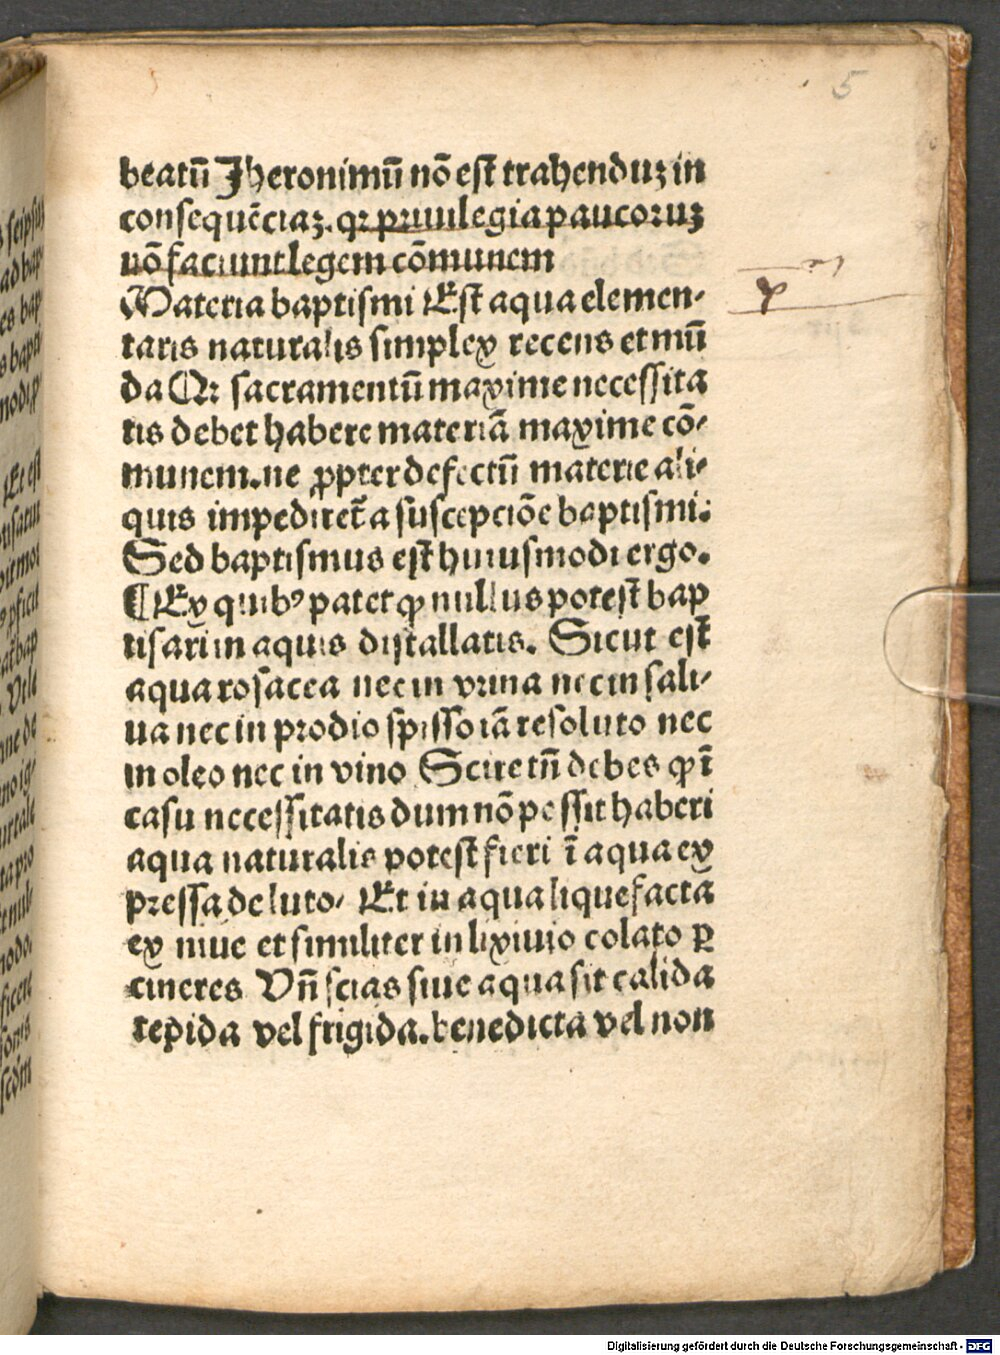 5
beatū Jheronimū nō est trahenduꝫ in
consequēciaꝫ. qꝛ priuilegia paucoruꝫ
nō faciunt legem cōmunem
Materia baptismi Est aqua elemen-
taris naturalis simplex recens et mū
da Qꝛ sacramentū maxime necessita
tis debet habere materiā maxime cō-
munem. ne ꝓpter defectū materie ali-
quis impediret̄ a suscepciōe baptismi.
Sed baptismus est huiusmodi ergo.
¶ Ex quibꝰ patet ꝙ nullus potest bap
tisari in aquis distallatis. Sicut est
aqua rosacea nec in vrina nec in sali-
ua nec in prodio spisso iā resoluto nec
in oleo nec in vino Scire tn̄ debes ꝙ ī
casu necessitatis dum nō possit haberi
aqua naturalis potest fieri ī aqua ex
pressa de luto/ Et in aqua liquefacta
ex niue et similiter in lixiuio colato ꝑ
cineres Vn̄ scias siue aqua sit calida
tepida vel frigida. benedicta vel non
Digitalisierung gefördert durch die Deutsche Forschungsgemeinschaft - DFG